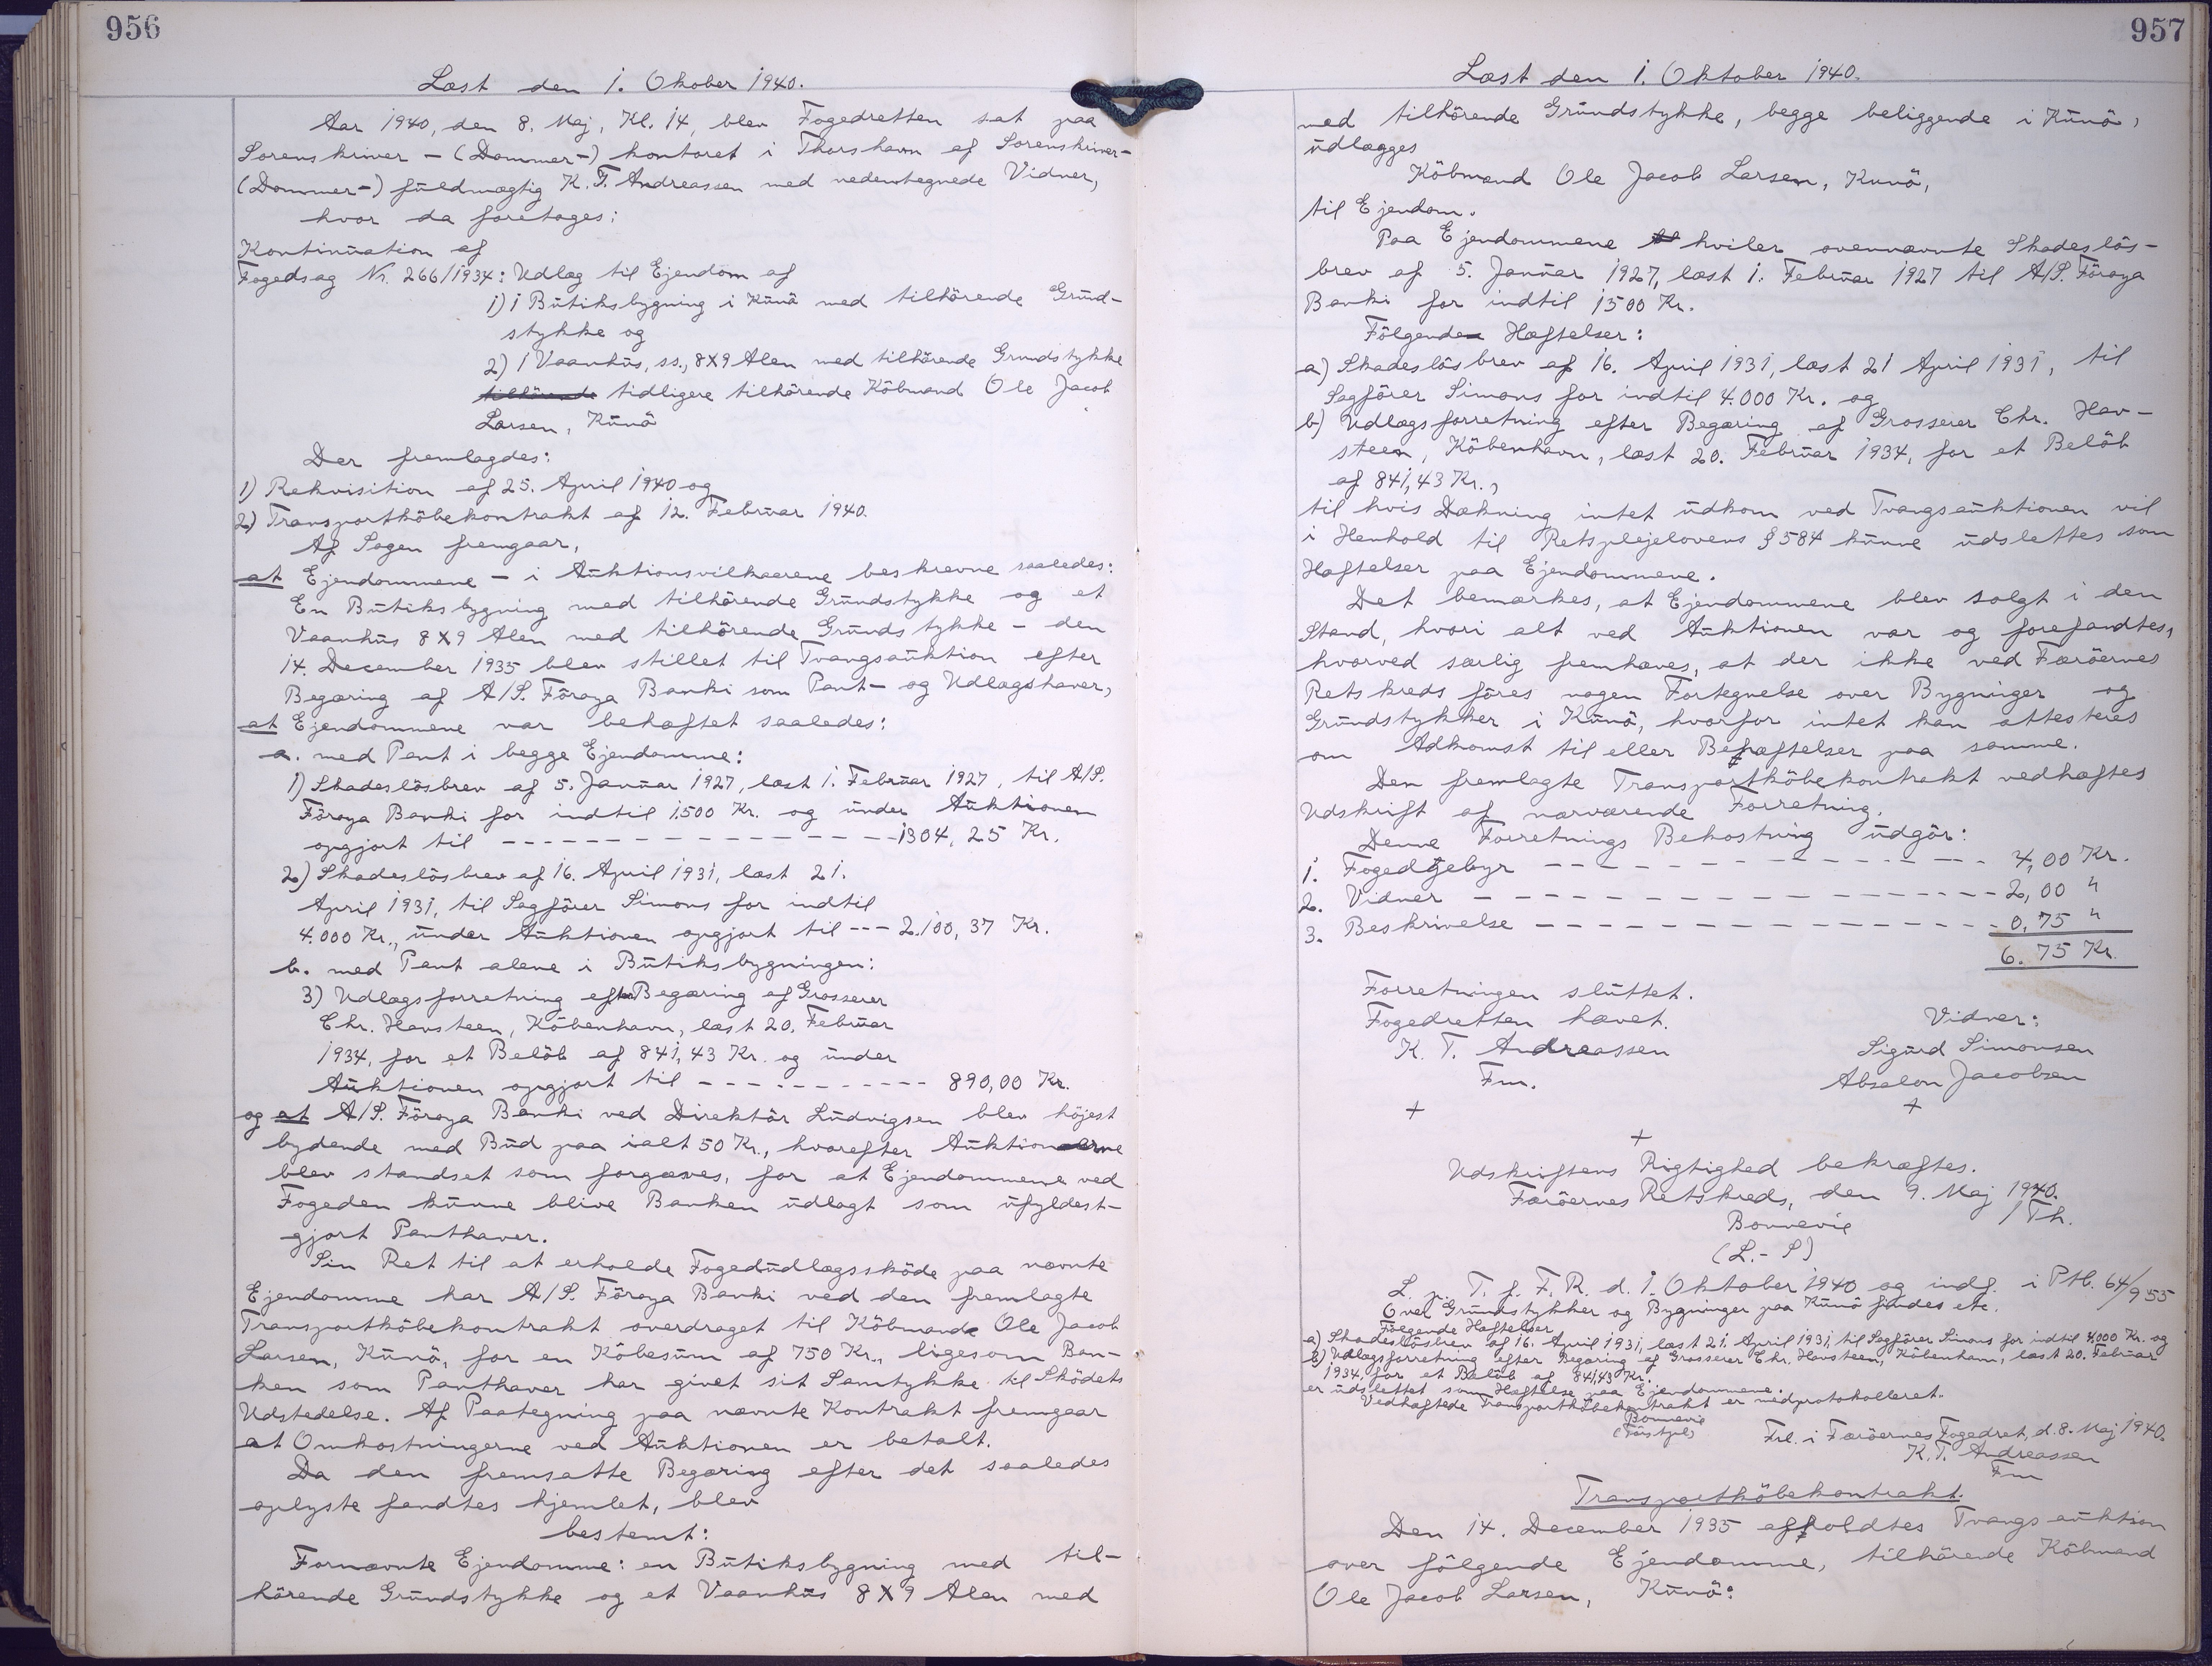 956
Læst den 1. Okober 1940.
Aar 1940, den 8. Maj, Kl. 14, blev Fogedretten sat paa
Sorenskriver-(Dommer-) kontoret i Thorshavn af Sorenskriver-
(Dommer-) fuldmægtig K. T. Andreassen med nedentegnede Vidner,
hvor da foretages:
Kontinuation af
Fogedsag Nr. 266/1934: Udlæg til Ejendom af
1) 1 Butiksbygning i Kunö med tilhörende Grund-
stykke og
2) 1 Vaanhus, ss., 8X9 Alen med tilhörende Grundstykke
tilhörende tidligere tilhörende Köbmand Ole Jacob
Larsen, Kunö
Der fremlagdes:
1) Rekvisition af 25. April 1940 og
2) Transportköbekontrakt af 12. Februar 1940.
Af Sagen fremgaar,
at Ejendommene - i Auktionsvilkaarene beskrevne saaledes:
En Butiksbygning med tilhörende Grundstykke og et
Vaanhus 8X9 Alen med tilhörende Grundstykke - den
14. December 1935 blev stillet til Tvangsauktion efter
Begæring af A/S. Föroya Banki som Pant- og Udlægshaver,
at Ejendommene var behæftet saaledes:
a. med Pant i begge Ejendomme:
1) Skadeslösbrev af 5. Januar 1927, læst 1. Februar 1927, til A/S.
Föroya Banki for indtil 1500 Kr. og under Auktionen
opgjort til - - - - - - - - - - - - - - 1304,25 Kr.
2) Skadeslösbrev af 16. April 1931, læst 21.
April 1931, til Sagförer Simons for indtil
4.000 Kr., under Auktionen opgjort til --- 2.100,37 Kr.
b. med Pant alene i Butiksbygningen:
3) Udlægsforretning efter Begæring af Grosserer
Chr. Havsteen, Köbenhavn, læst 20. Februar
1934, for et Belöb af 841,43 Kr. og under
Auktionen opgjort til - - - - - - - - - - 890,00 Kr.
og at A/S. Föroya Banki ved Direktör Ludvigsen blev höjest
bydende med Bud paa ialt 50 Kr., hvorefter Auktionerne
blev standset som forgæves, for at Ejendommene ved
Fogeden kunne blive Banken udlagt som ufyldest-
gjort Panthaver.
Sin Ret til at erholde Fogedudlægsskøde paa nævnte
Ejendomme har A/S. Föroya Banki ved den fremlagte
Transportköbekontrakt overdraget til Köbmand Ole Jacob
Larsen, Kunö, for en Köbesum af 750 Kr., ligesom Ban-
ken som Panthaver har givet sit Samtykke til Sködets
Udstedelse. Af Paategning paa nævnte Kontrakt fremgaar
at Omkostningerne ved Auktionen er betalt.
Da den fremsatte Begæring efter det saaledes
oplyste fandtes hjemlet, blev
bestemt:
Fornævnte Ejendomme: en Butiksbygning med til-
hörende Grundstykke og et Vaanhus 8X9 Alen med
957
Læst den 1. Oktober 1940.
med tilhörende Grundstykke, begge beliggende i Kunö,
udlægges
Köbmand Ole Jacob Larsen, Kunö,
til Ejendom.
Paa Ejendommene hviler ovennævnte Skadeslös-
brev af 5. Januar 1927, læst 1. Februar 1927 til A/S. Föroya
Banki for indtil 1500 Kr.
Fölgende Hæftelser:
a) Skadeslösbrev af 16. April 1931, læst 21 April 1931, til
Sagförer Simons for indtil 4.000 Kr. og
b) Udlægsforretning efter Begæring af Grosserer Chr. Hav-
steen, Köbenhavn, læst 20. Februar 1934, for et Belöb
af 841,43 Kr.,
til hvis Dækning intet udkom ved Tvangsauktionen vil
i Henhold til Retsplejelovens § 584 kunne udslettes som
Hæftelser paa Ejendommene.
Det bemærkes, at Ejendommene blev solgt i den
Stand, hvori alt ved Auktionen var og forefandtes,
hvorved særlig fremhæves, at der ikke ved Færöernes
Retskreds föres nogen Fortegnelse over Bygninger og
Grundstykker i Kunö, hvorfor intet kan attesteres
om Adkomst til eller Behæftelser paa samme.
Den fremlagte Transportköbekontrakt vedhæftes
Udskrift af nærværende Forretning.
Denne Forretnings Bekostning udgör:
1. Fogedgebyr - - - - - - - - - - - - - - 4,00 Kr.
2. Vidner - - - - - - - - - - - - - - - - 2,00 "
3. Beskrivelse - - - - - - - - - - - - - - 0,75 "
6.75 Kr.
Forretningen sluttet.
Fogedretten hævet.
K. T. Andreassen
Fm.
Vidner:
Sigurd Simonsen
Absalon Jacobsen
+ +
+
Udskriftens Rigtighed bekræftes.
Færöernes Retskreds, den 9. Maj 1940.
Bonnevie
/Th.
(L.-S)
L. p. T. f. F. R. d. 1. Oktober 1940 og indf. i Ptb. 64/955
Over Grundstykker og Bygninger paa Kunö findes etc.
Fölgende Hæftelser
a) Skadeslösbrev af 16. April 1931, læst 21. April 1931, til Sagförer Simons for indtil 4000 Kr. og
b) Udlægsforretning efter Begæring af Grosserer Chr. Havsteen, Köbenhavn, læst 20. Februar
1934, for et Belöb af 841,43 Kr.
er udslettet som Hæftelse paa Ejendommene.
Vedhæftede Transportköbekontrakt er medprotokolleret.
Bonnevie
Frl. i Færöernes Fogedret, d. 8. Maj 1940.
K. T. Andreassen
Fm
Transportköbekontrakt.
Den 14. December 1935 afholdtes Tvangsauktion
over fölgende Ejendomme, tilhörende Köbmand
Ole Jacob Larsen, Kunö: